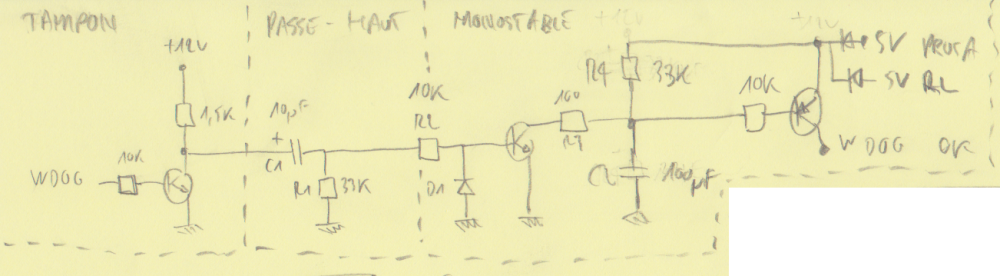 TAMPON
PASSE-HAUT
MONOSTABLE
+12V
1,5K
10K
WDOG
10µF
+
C1
R1
33K
10K
R2
D1
100
R3
R4
33K
C2
100µF
10K
5V PRUSA
5V RL
WDOG OK